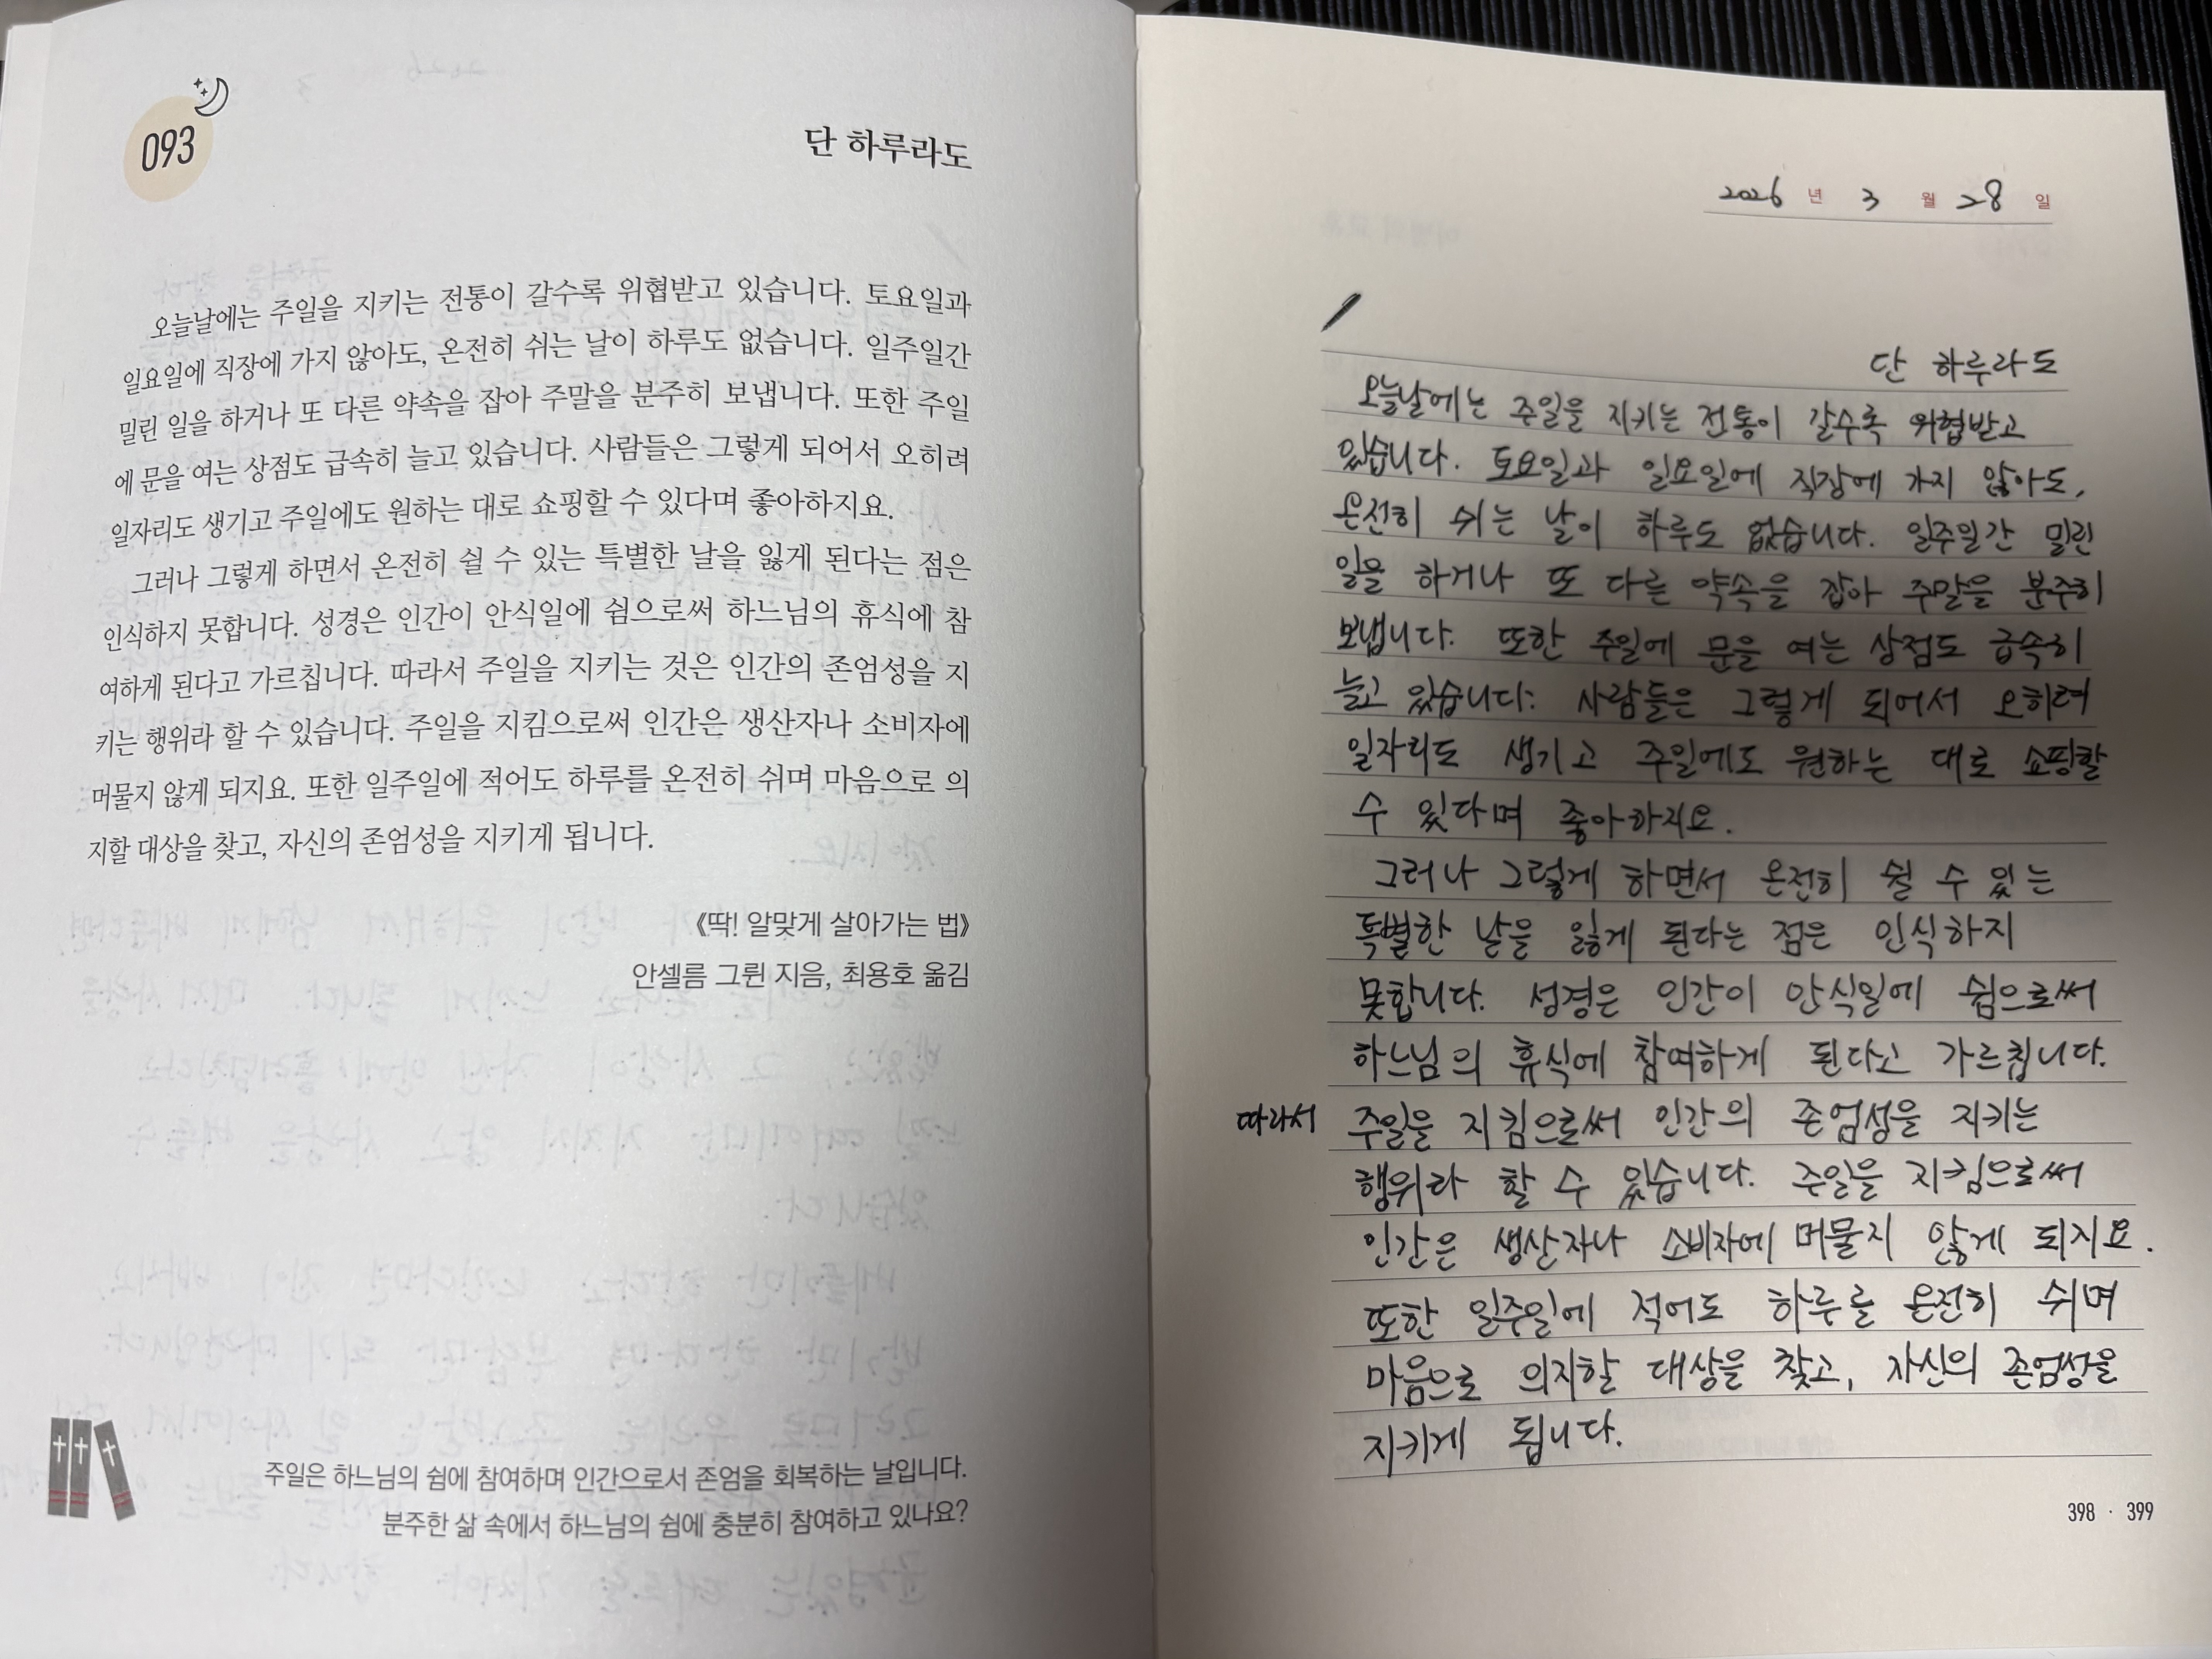 093
단 하루라도
오늘날에는 주일을 지키는 전통이 갈수록 위협받고 있습니다. 토요일과
일요일에 직장에 가지 않아도, 온전히 쉬는 날이 하루도 없습니다. 일주일간
밀린 일을 하거나 또 다른 약속을 잡아 주말을 분주히 보냅니다. 또한 주일
에 문을 여는 상점도 급속히 늘고 있습니다. 사람들은 그렇게 되어서 오히려
일자리도 생기고 주일에도 원하는 대로 쇼핑할 수 있다며 좋아하지요.
그러나 그렇게 하면서 온전히 쉴 수 있는 특별한 날을 잃게 된다는 점은
인식하지 못합니다. 성경은 인간이 안식일에 쉼으로써 하느님의 휴식에 참
여하게 된다고 가르칩니다. 따라서 주일을 지키는 것은 인간의 존엄성을 지
키는 행위라 할 수 있습니다. 주일을 지킴으로써 인간은 생산자나 소비자에
머물지 않게 되지요. 또한 일주일에 적어도 하루를 온전히 쉬며 마음으로 의
지할 대상을 찾고, 자신의 존엄성을 지키게 됩니다.
《딱! 알맞게 살아가는 법》
안셀름 그륀 지음, 최용호 옮김
주일은 하느님의 쉼에 참여하며 인간으로서 존엄을 회복하는 날입니다.
분주한 삶 속에서 하느님의 쉼에 충분히 참여하고 있나요?
2026 년 3 월 28 일
단 하루라도
오늘날에는 주일을 지키는 전통이 갈수록 위협받고
있습니다. 토요일과 일요일에 직장에 가지 않아도,
온전히 쉬는 날이 하루도 없습니다. 일주일간 밀린
일을 하거나 또 다른 약속을 잡아 주말을 분주히
보냅니다. 또한 주일에 문을 여는 상점도 급속히
늘고 있습니다. 사람들은 그렇게 되어서 오히려
일자리도 생기고 주일에도 원하는 대로 쇼핑할
수 있다며 좋아하지요.
그러나 그렇게 하면서 온전히 쉴 수 있는
특별한 날을 잃게 된다는 점은 인식하지
못합니다. 성경은 인간이 안식일에 쉼으로써
하느님의 휴식에 참여하게 된다고 가르칩니다.
따라서 주일을 지킴으로써 인간의 존엄성을 지키는
행위라 할 수 있습니다. 주일을 지킴으로써
인간은 생산자나 소비자에 머물지 않게 되지요.
또한 일주일에 적어도 하루를 온전히 쉬며
마음으로 의지할 대상을 찾고, 자신의 존엄성을
지키게 됩니다.
398 · 399